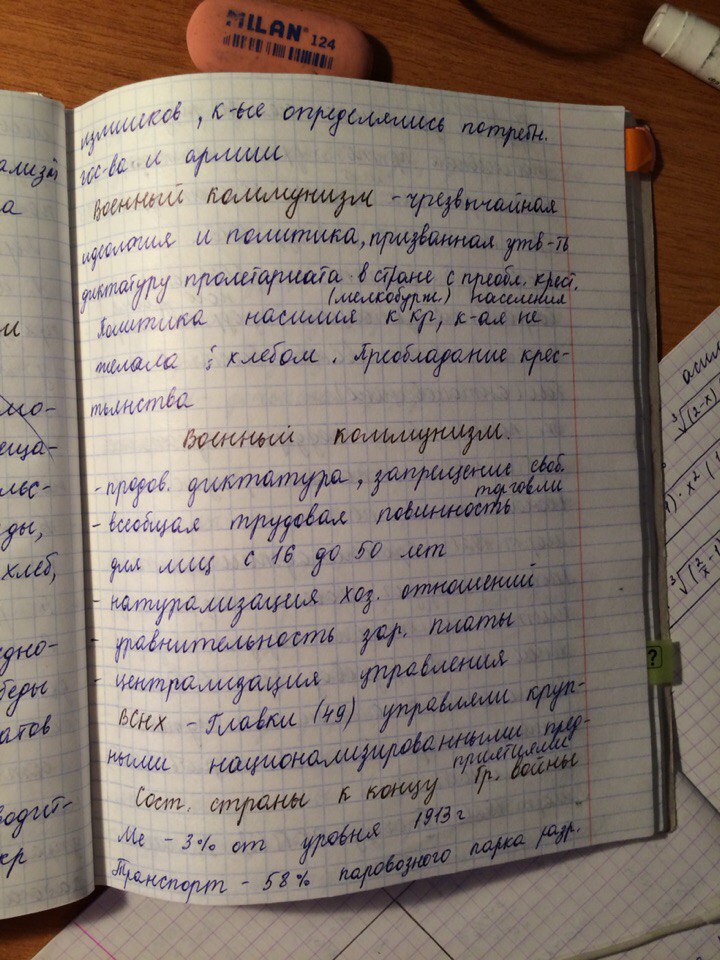 MILAN® 124
излишков, к-ые определялись потребн.
гос-ва и армии
Военный коммунизм - чрезвычайная
идеология и политика, призванная утв-ть
диктатуру пролетариата в стране с преобл. крест.
(мелкобурж.) населения
Политика насилия к кр, к-ая не
желала : хлебом. Преобладание крес-
тьянства
Военный коммунизм.
- продов. диктатура, запрещение своб.
торговли
- всеобщая трудовая повинность
для лиц с 16 до 50 лет
- натурализация хоз. отношений
- уравнительность зар. платы
- централизация управления
ВСНХ - Главки (49) управляли круп-
ными национализированными пред-
приятиями
Сост. страны к концу Гр. войны
Ме - 3% от уровня 1913 г
Транспорт - 58% паровозного парка разр.
ализм
а
и
мо-
еща-
льс-
ды,
хлеб,
едно-
беды
атов
водит-
кр
?
³√(2-x)